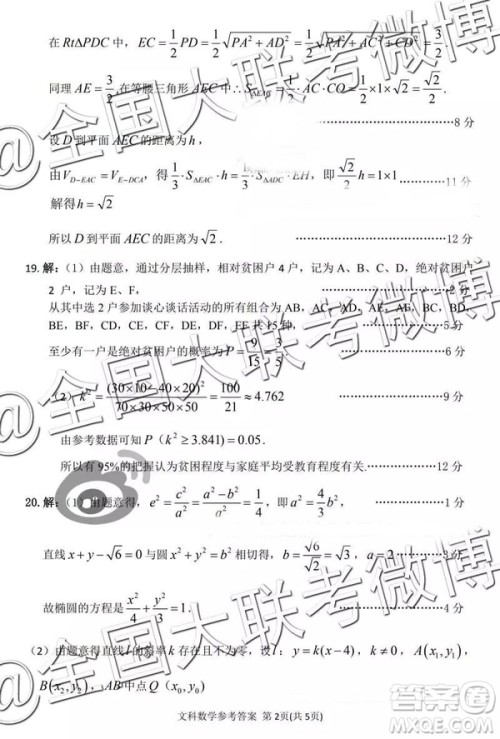 在 Rt△PDC 中，EC = 1/2 PD = 1/2 √(PA² + AD²) = 1/2 √(PA² + AC² + CD²) = 3/2
同理 AE = 3/2,在等腰三角形 EAC 中∴S△EAC = 1/2 · AC · CQ = 1/2 ×1×√2 = √2/2.
8 分
设 D 到平面 AEC 的距离为 h，
由 V_{D−EAC} = V_{E−DCA}，得 1/3 · S△EAC · h = 1/3 · S△ADC · EH，即 √2/2 h = 1×1 ⋯⋯⋯ 11 分
解得 h = √2
所以 D 到平面 AEC 的距离为 √2. ⋯⋯⋯ 12 分
19. 解:（1）由题意，通过分层抽样，相对贫困户 4 户，记为 A、B、C、D，绝对贫困户
2 户，记为 E、F.
从其中选 2 户参加谈心谈话活动的所有组合为 AB，AC，AD，AE，AF，BC，BD，
BE，BF，CD，CE，CF，DE，DF，EF 共 15 种，⋯⋯⋯ 5 分
至少有一户是绝对贫困户的概率为 P = 9/15 = 3/5 ⋯⋯⋯ 6 分
（2）k² = (30×10−40×20)² / 70×30×50×50 = 100/21 ≈ 4.762 ⋯⋯⋯ 9 分
由参考数据可知 P（k² ≥ 3.841）= 0.05.
所以有 95%的把握认为贫困程度与家庭平均受教育程度有关. ⋯⋯⋯ 12 分
20. 解:（1）由题意得，e² = c²/a² = (a² − b²)/a² = 1/4，即 a² = 4/3 b²，⋯⋯⋯ 1 分
直线 x + y − √6 = 0 与圆 x² + y² = b² 相切得，b = √6/√2 = √3，a = 2 ⋯⋯⋯ 3 分
故椭圆的方程是 x²/4 + y²/3 = 1. ⋯⋯⋯ 4 分
（2）由题意得直线 l 的斜率 k 存在且不为零，设 l：y = k(x − 4)，k ≠ 0，A(x₁, y₁)，
B(x₂, y₂)，AB 中点 Q（x₀, y₀）
文科数学参考答案 第 2页(共 5页)
@全国大联考微博
@全国大联考微博
@全国大联考微博